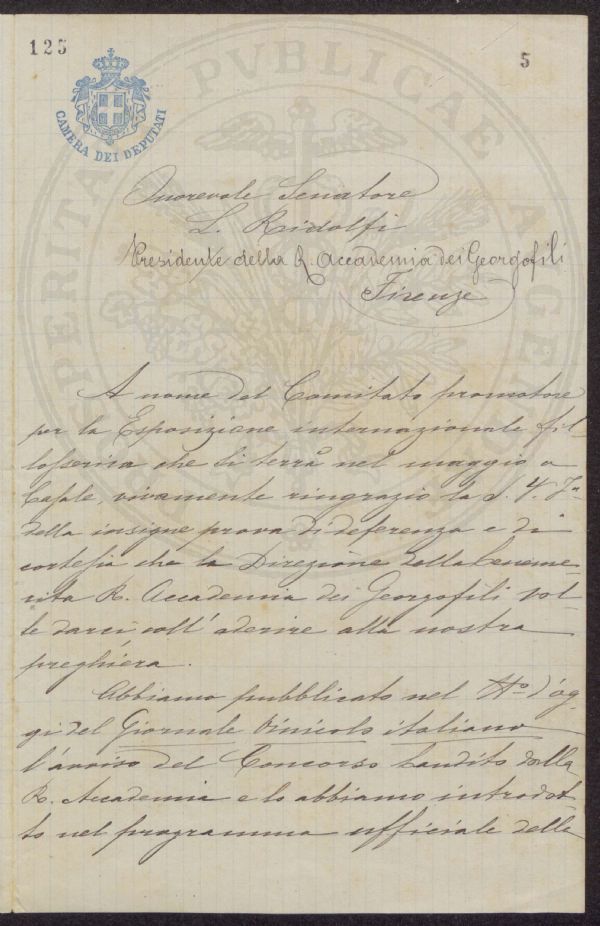 125
5
CAMERA DEI DEPUTATI
PROSPERITATI PVBLICAE AVGENDAE
Onorevole Senatore
L. Ridolfi
Presidente della R. Accademia dei Georgofili
Firenze
A nome del Comitato promotore
per la Esposizione internazionale fil
losserica che si terrà nel maggio a
Casale, vivamente ringrazio la S. V. Ill.
della insigne prova di deferenza e di
cortesia che la Direzione della beneme-
rita R. Accademia dei Georgofili vol-
le darci coll' aderire alla nostra
preghiera.
Abbiamo pubblicato nel No d'og
gi del Giornale Vinicolo italiano
l'avviso del Concorso bandito dalla
R. Accademia e lo abbiamo introdot-
to nel programma ufficiale delle